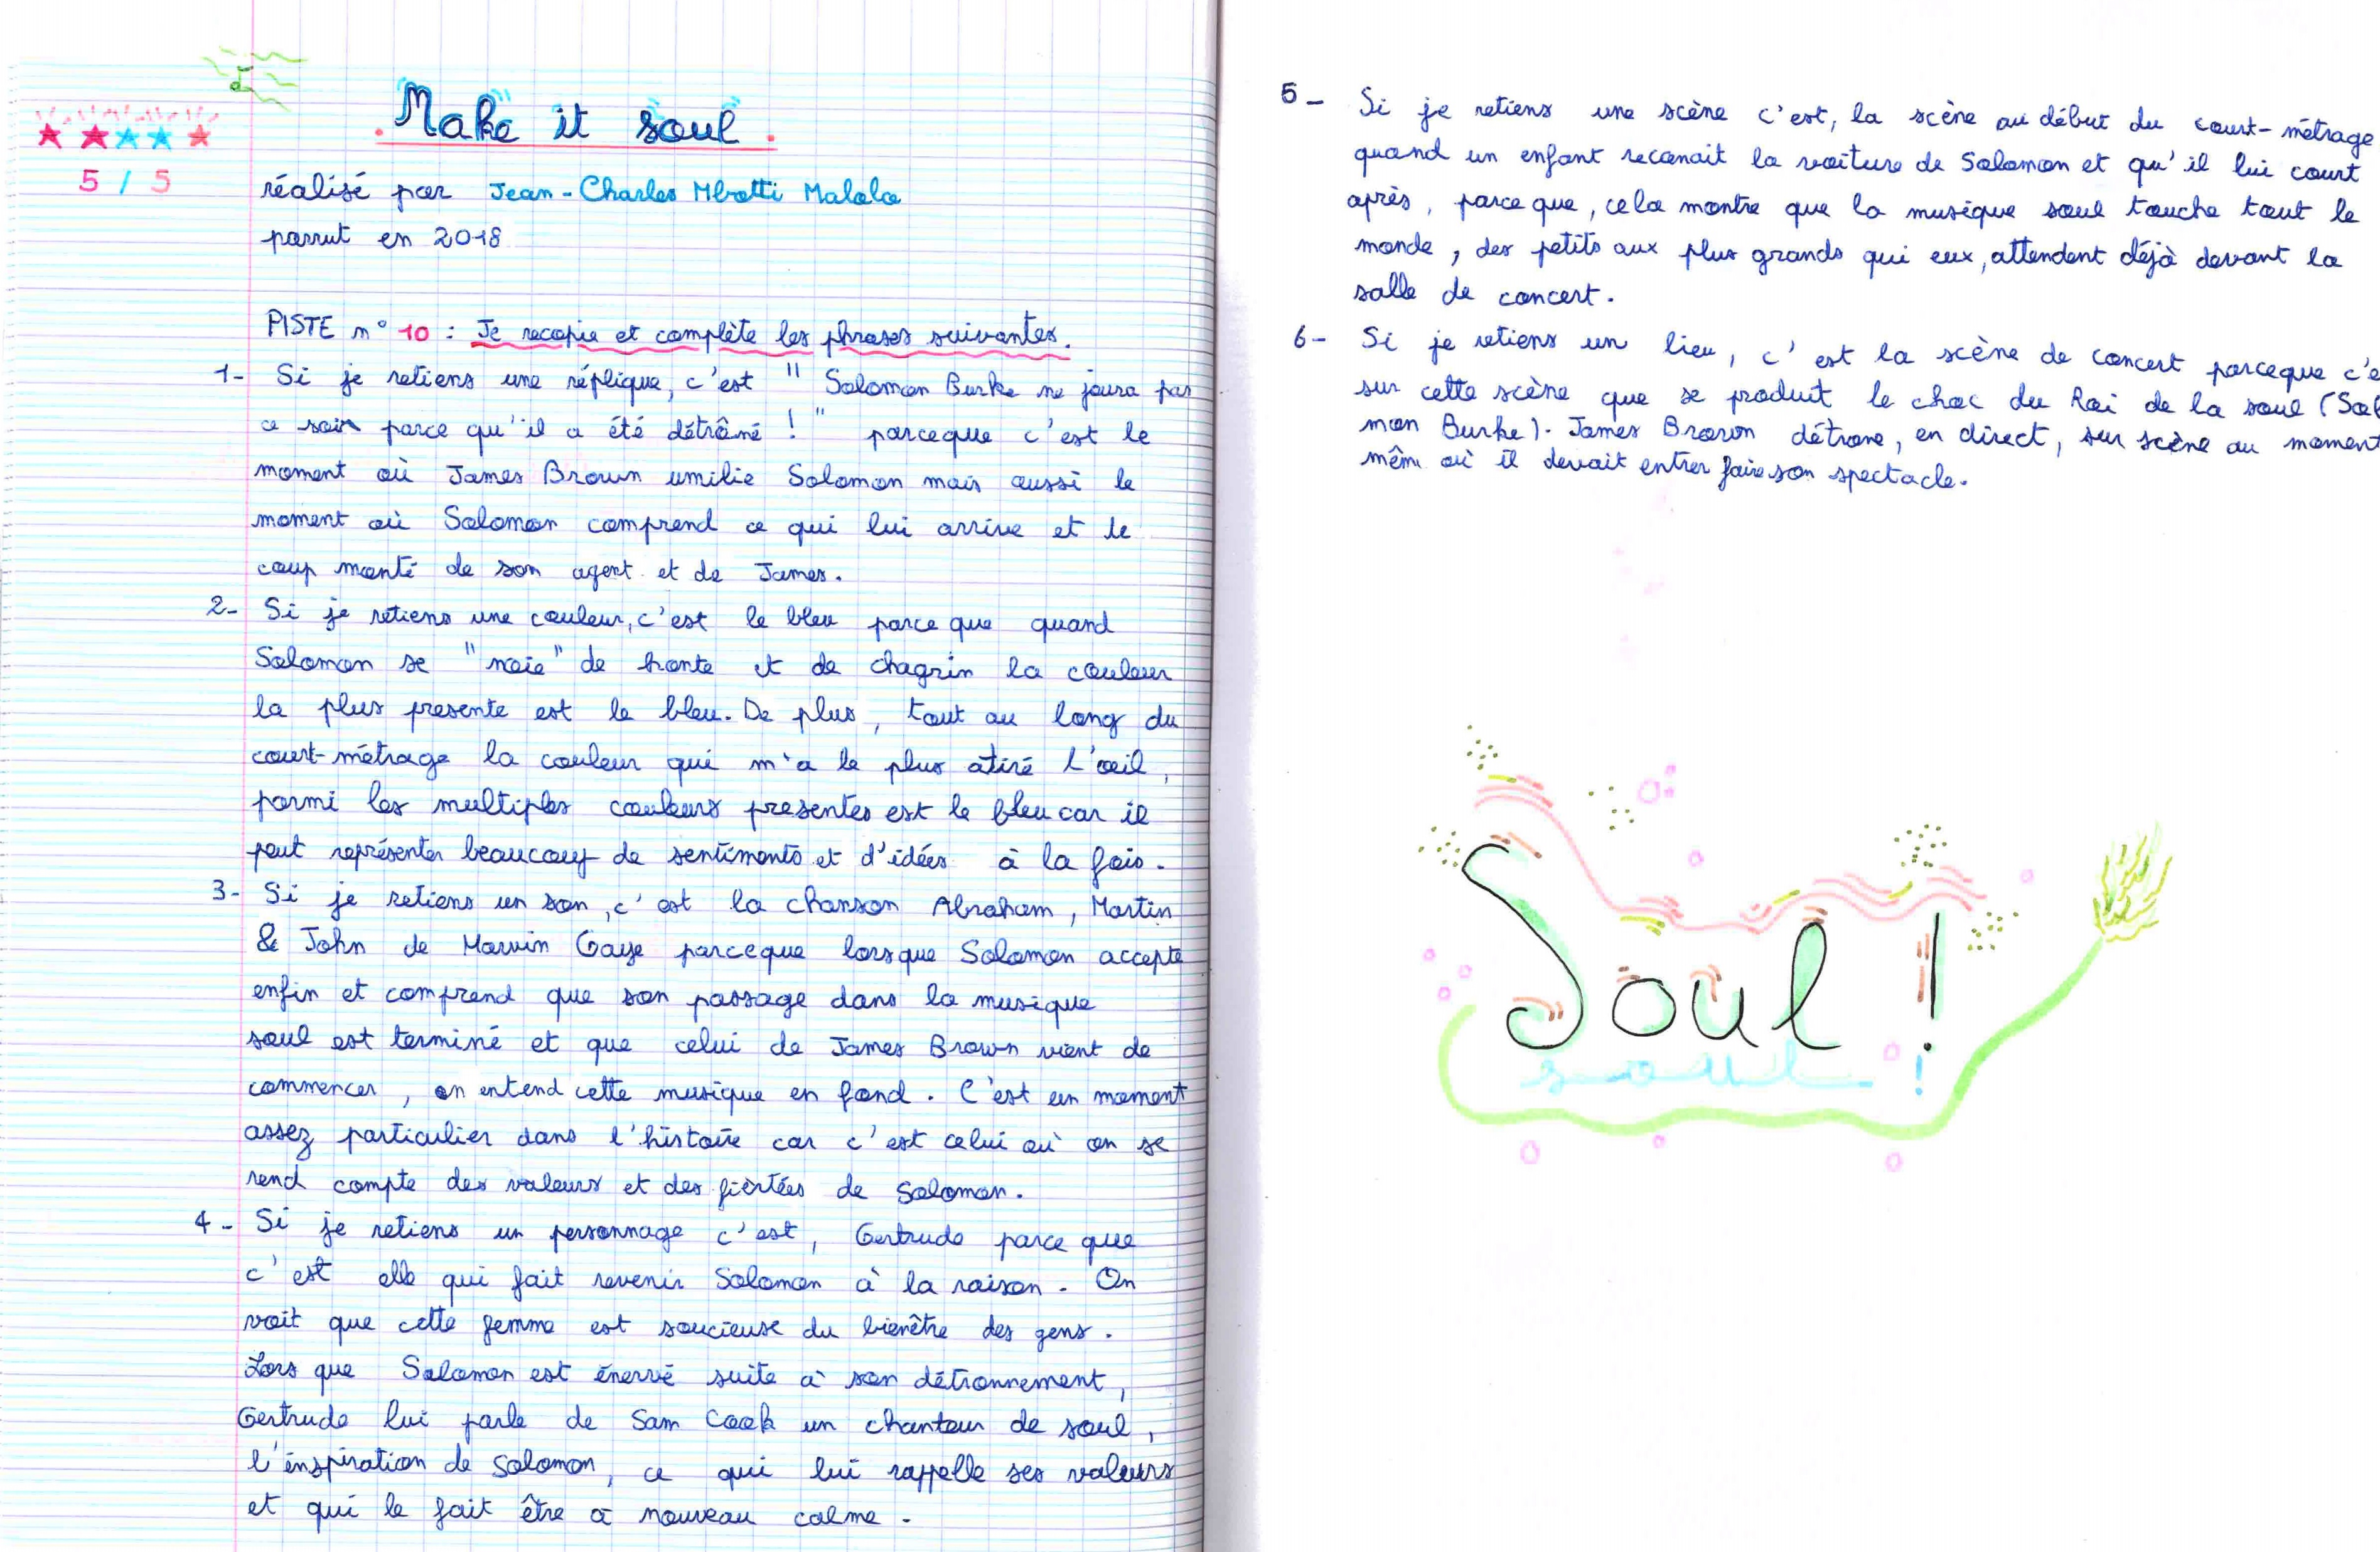 Make it soul
5 / 5
réalisé par Jean-Charles Mbotti Malolo
parrut en 2018
PISTE n° 10 : Je recopie et complète les phrases suivantes.
1- Si je retiens une réplique, c'est " Solomon Burke ne joura pas
ce soir parce qu'il a été détrôné ! " parceque c'est le
moment où James Brown umilie Solomon mais aussi le
moment où Solomon comprend ce qui lui arrive et le
coup monté de son agent et de James.
2- Si je retiens une couleur, c'est le bleu parce que quand
Solomon se "noie" de honte et de chagrin la couleur
la plus presente est le bleu. De plus, tout au long du
court-métrage la couleur qui m'a le plus atiré l'œil,
parmi les multiples couleurs presentes est le bleu car il
peut représenter beaucoup de sentiments et d'idées à la fois.
3- Si je retiens un son, c'est la chanson Abraham, Martin
& John de Marvin Gaye parceque lorsque Solomon accepte
enfin et comprend que son passage dans la musique
soul est terminé et que celui de James Brown vient de
commencer, on entend cette musique en fond. C'est un moment
assez particulier dans l'histoire car c'est celui où on se
rend compte des valeurs et des fièrtées de Solomon.
4- Si je retiens un personnage c'est, Gertrude parce que
c'est elle qui fait revenir Solomon à la raison. On
voit que cette femme est soucieuse du bienêtre des gens.
Lors que Solomon est énervé suite à son détronnement,
Gertrude lui parle de Sam Cook un chanteur de soul,
l'inspiration de Solomon, ce qui lui rappelle ses valeurs
et qui le fait être à nouveau calme.
5- Si je retiens une scène c'est, la scène au début du court-métrage
quand un enfant reconait la voiture de Solomon et qu'il lui court
après, parce que, cela montre que la musique soul touche tout le
monde, des petits aux plus grands qui eux, attendent déjà devant la
salle de concert.
6- Si je retiens un lieu, c'est la scène de concert parceque c'e
sur cette scène que se produit le choc du Roi de la soul (Sol
mon Burke). James Brown détrone, en direct, sur scène au moment
mêm où il devait entrer faire son spectacle.
Soul !
soul !